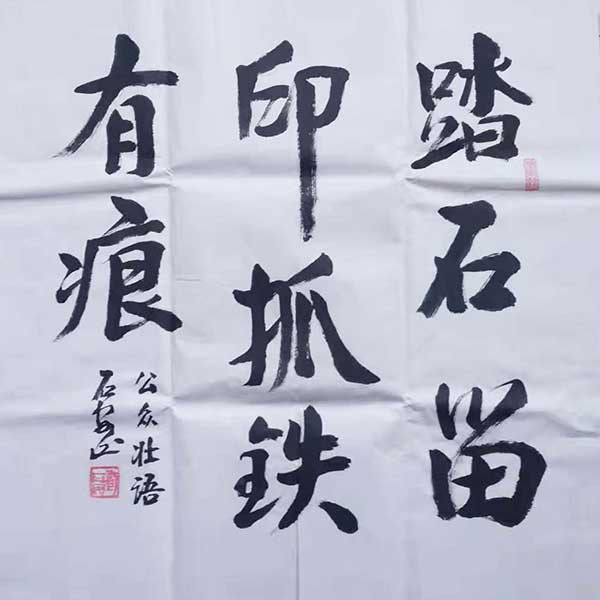 踏石留
印抓铁
有痕
公众壮语